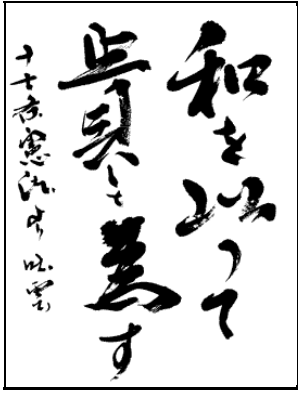 和を以って
貴しと為す
十七条憲法より